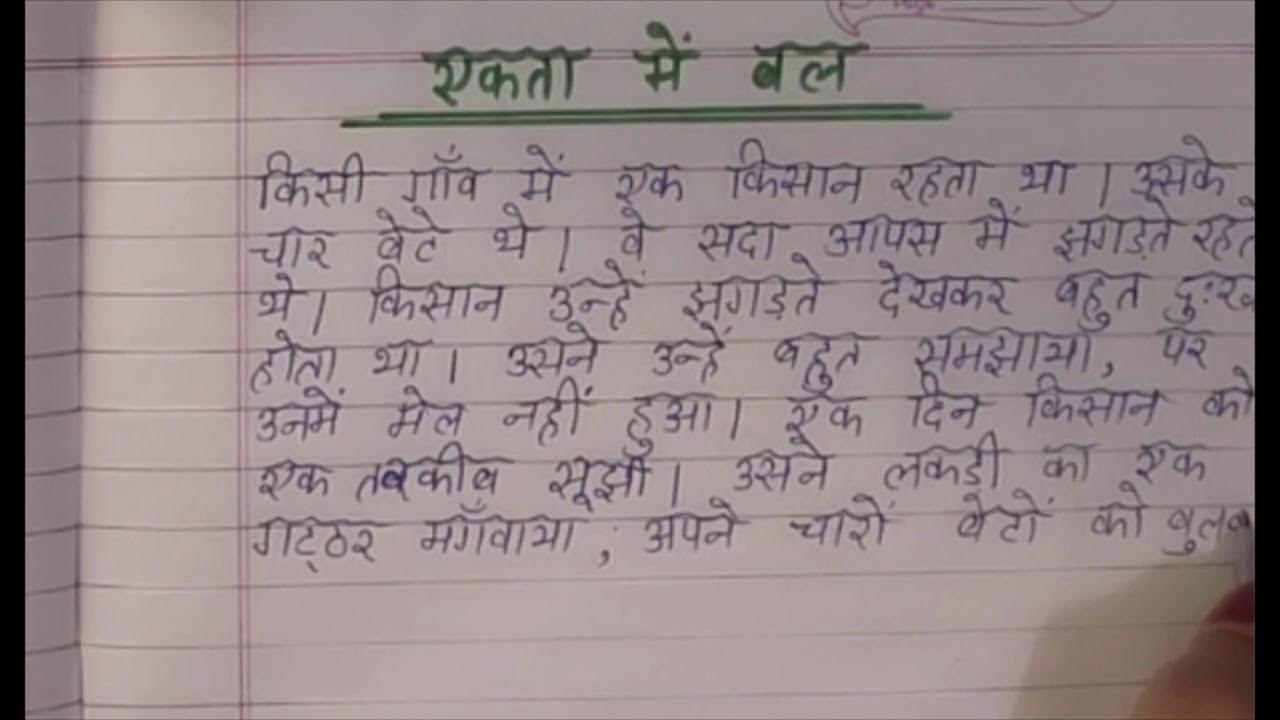 एकता में बल
किसी गाँव में एक किसान रहता था । उसके
चार बेटे थे । वे सदा आपस में झगड़ते रहते
थे । किसान उन्हें झगड़ते देखकर बहुत दुःख
होता था । उसने उन्हें बहुत समझाया, पर
उनमें मेल नहीं हुआ । एक दिन किसान को
एक तरकीब सूझी । उसने लकडी का एक
गट्ठर मँगवाया , अपने चारों बेटों को